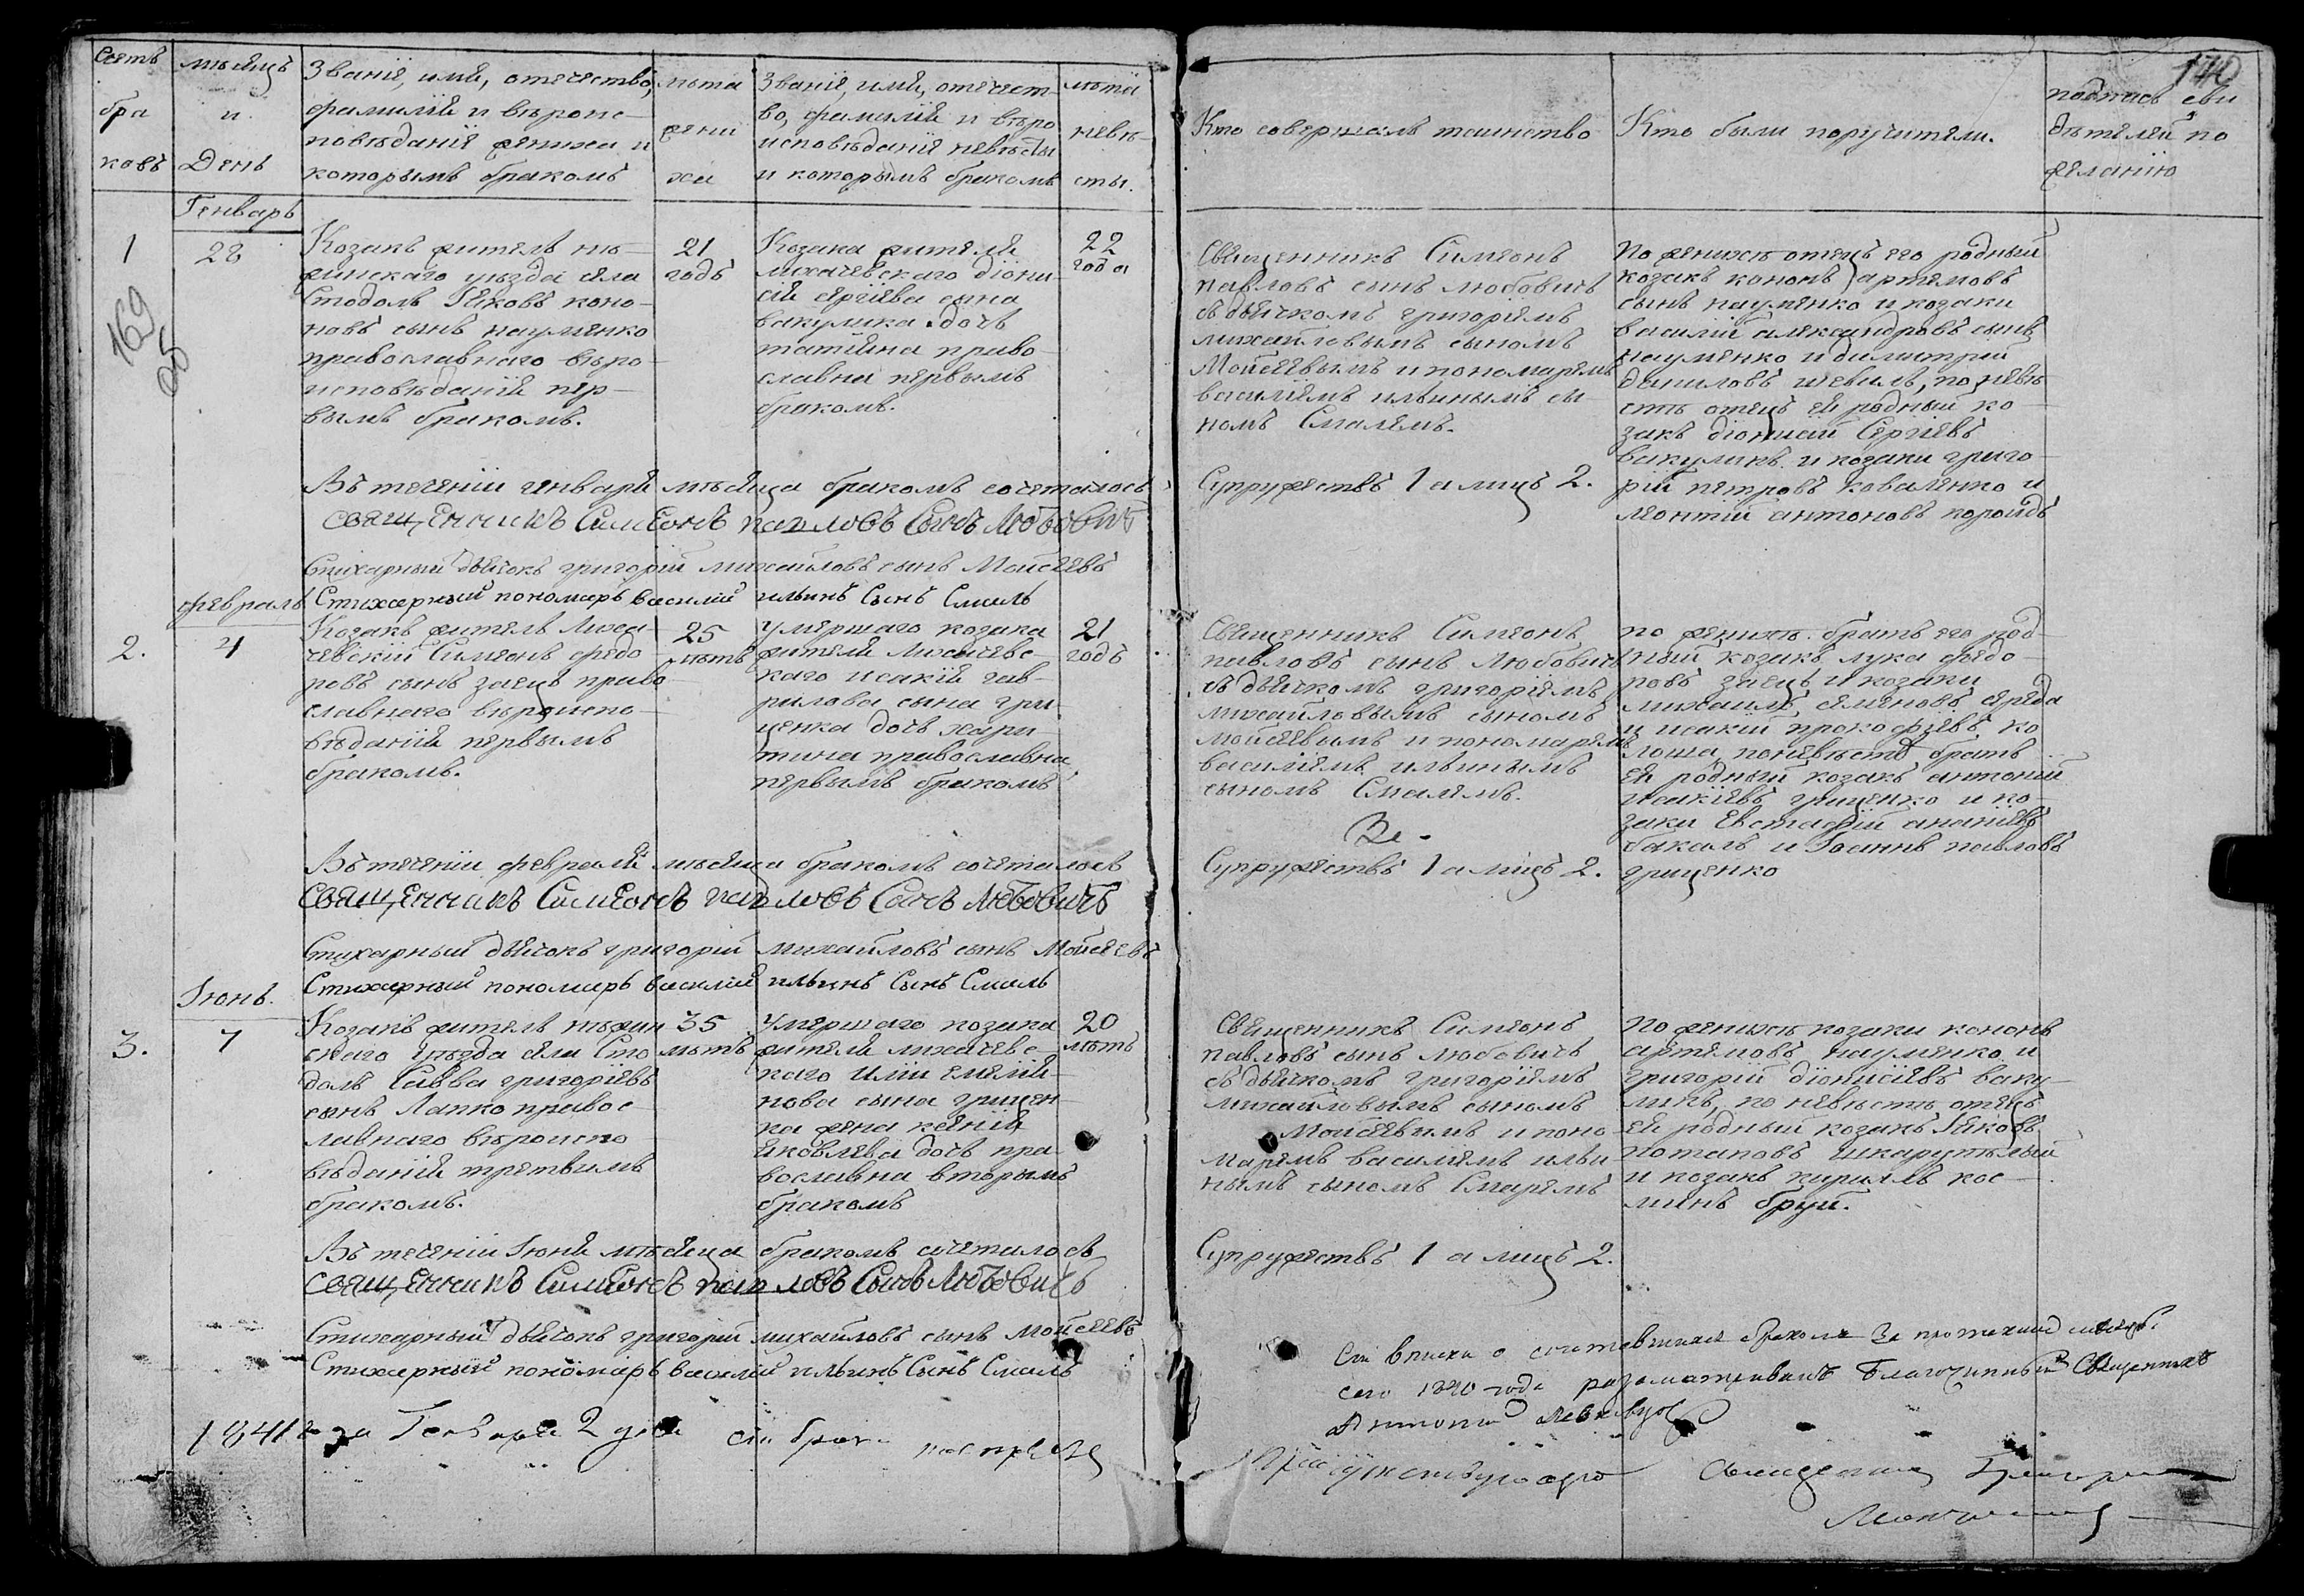 140
Счетъ
бра
ковъ
мѣсяцъ
и
День
Званіе, имя, отечество,
фамилія и вѣроис-
повѣданіе жениха и
которымъ бракомъ
лѣта
жени
ха
Званіе, имя, отечест-
во, фамилія и вѣро
исповѣданіе невѣсты
и которымъ бракомъ
лѣта
невѣ-
сты.
Кто совершалъ таинство
Кто были поручители.
подписъ сви
дѣтелей по
желанію
Генварь
1
28
169
об
Козакъ житель нѣ-
жинскаго уѣзда села
Стодолъ Іяковъ коно-
новъ сынъ науменко
православнаго вѣро-
исповѣданія пер-
вымъ бракомъ.
21
годъ
Козака жителя
лихачевскаго діони-
сія сергіева сына
вакулика дочь
татіяна право-
славна первымъ
бракомъ.
22
года
Священникъ Симеонъ
павловъ сынъ любовичь
съ дьячкомъ григоріемъ
михайловымъ сыномъ
Моисеевымъ и пономаремъ
василіемъ ильинымъ сы-
номъ Смалемъ.
По женихѣ отецъ его родный
козакъ кононъ артемовъ
сынъ науменко и козаки
василій александровъ сынъ
науменко и димитрій
даниловъ шевель, по невѣ
стѣ отецъ ея родный ко-
закъ діонисій Сергіевъ
вакуликъ и козаки григо-
рій петровъ коваленко и
леонтій антоновъ короидъ
Въ теченіи генваря мѣсяца бракомъ сочеталось
Супружествъ 1 а лицъ 2.
священникъ Симеонъ павловъ Сынъ Любовичъ
Стихарный дьячокъ григорій михайловъ сынъ Моисеевъ
Стихарный пономарь василій ильинъ Сынъ Смаль
февраль
2.
4
Козакъ житель лиха-
чевскій Симеонъ федо-
ровъ сынъ заецъ право-
славнаго вѣроиспо-
вѣданія первымъ
бракомъ.
25
лѣтъ
умершаго козака
жителя лихачевс-
каго исакія гав-
рилова сына гри-
ценка дочь хари-
тина православна
первымъ бракомъ
21
годъ
Священникъ Симеонъ
павловъ сынъ любовичь
съ дьячкомъ григоріемъ
михайловымъ сыномъ
моисеевымъ и пономаремъ
василіемъ ильинымъ
сыномъ Смалемъ.
по женихѣ братъ его род-
ный козакъ лука федо-
ровъ заецъ и козаки
михаилъ семеновъ середа
и исакій прокофіевъ ко
лоша, по невѣстѣ братъ
ея родный козакъ антоній
исакіевъ гриценко и ко-
заки Евстафій ананіевъ
бакалъ и Іоаннъ павловъ
гриценко
Въ теченіи февраля мѣсяца бракомъ сочеталось
Супружествъ 1 а лицъ 2.
священникъ Симеонъ павловъ Сынъ Любовичъ
Стихарный дьячокъ григорій михайловъ сынъ Моисеевъ
Стихарный пономарь василій ильинъ Сынъ Смаль
Іюнь.
3.
7
Козакъ житель нѣжин
скаго уѣзда села Сто
долъ Савва григоріевъ
сынъ Лапко правос-
лавнаго вѣроиспо
вѣданія третьимъ
бракомъ.
35
лѣтъ
умершаго козака
жителя лихачевс-
каго иліи емелія-
нова сына грицен-
ка жена ксенія
яковлева дочь пра-
вославна вторымъ
бракомъ
20
лѣтъ
Священникъ Симеонъ
павловъ сынъ любовичь
съ дьячкомъ григоріемъ
михайловымъ сыномъ
Моисеевымъ и поно
маремъ василіемъ ильи
нымъ сыномъ Смалемъ
По женихѣ козаки кононъ
артемовъ науменко и
григорій діонисіевъ ваку-
ликъ, по невѣстѣ отецъ
ея родный козакъ Іяковъ
потаповъ шкарупелый
и козакъ кирилъ кос-
минъ бруй.
Въ теченіи Іюня мѣсяца бракомъ сочеталось
Супружествъ 1 а лицъ 2.
священникъ Симеонъ павловъ Сынъ Любовичъ
Стихарный дьячокъ григорій михайловъ сынъ Моисеевъ
Стихарный пономарь василій ильинъ Сынъ Смаль
сего 1840 года разсматривалъ Благочинный Священникъ
Антоній
1841 года Генваря 2 дня
Присутствующій Священникъ Григорій